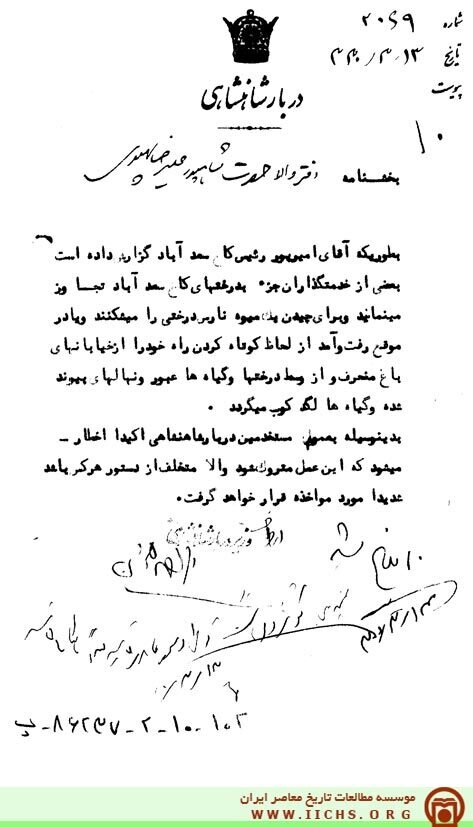 شماره ۲۰۶۹
تاریخ ۱۳/۳/۴۰
پیوست
دربار شاهنشاهی
۱۰
بخشنامه دفتر والاحضرت شاهپور حمیدرضا پهلوی
بطوریکه آقای امیرپور رئیس کاخ سعد آباد گزارش داده است
بعضی از خدمتگذاران جزء بدرختهای کاخ سعد آباد تجاوز
مینمایند وبرای چیدن یک میوه نارس درختی را میشکنند ویا در
موقع رفت و آمد از لحاظ کوتاه کردن راه خود را از خیابانهای
باغ منحرف و از وسط درختها وگیاه ها عبور ونهالهای پیوند
شده وگیاه ها لگد کوب میگردد .
بدینوسیله بعموم مستخدمین دربار شاهنشاهی اکیدا اخطار -
میشود که این عمل متروک شود والا متخلف از دستور هرکس باشد
شدیدا مورد مواخذه قرار خواهد گرفت.
پ-۸۶۲۳۷-۲-۱۰-۱۰۲
موسسه مطالعات تاریخ معاصر ایران
WWW.IICHS.ORG